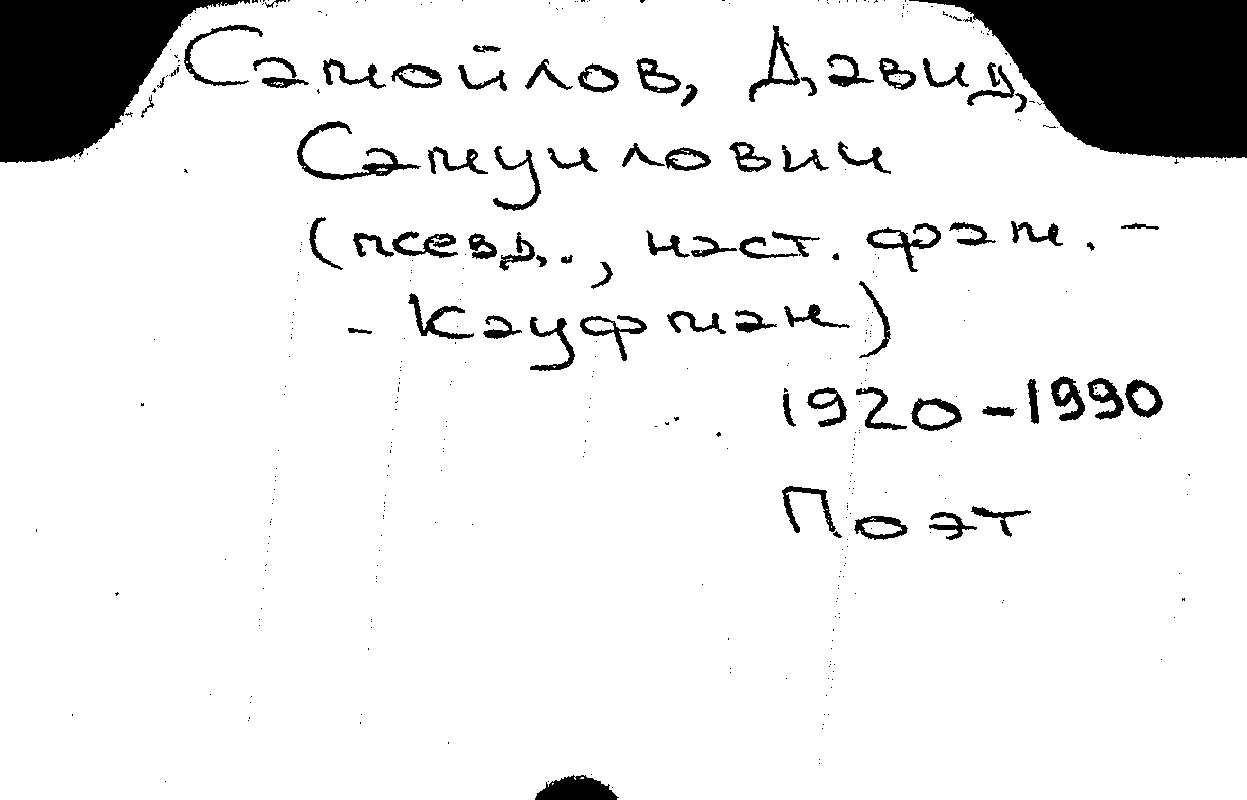 Самойлов, Давид
Самуилович
(псевд., наст. фам. -
- Кауфман)
1920-1990
Поэт